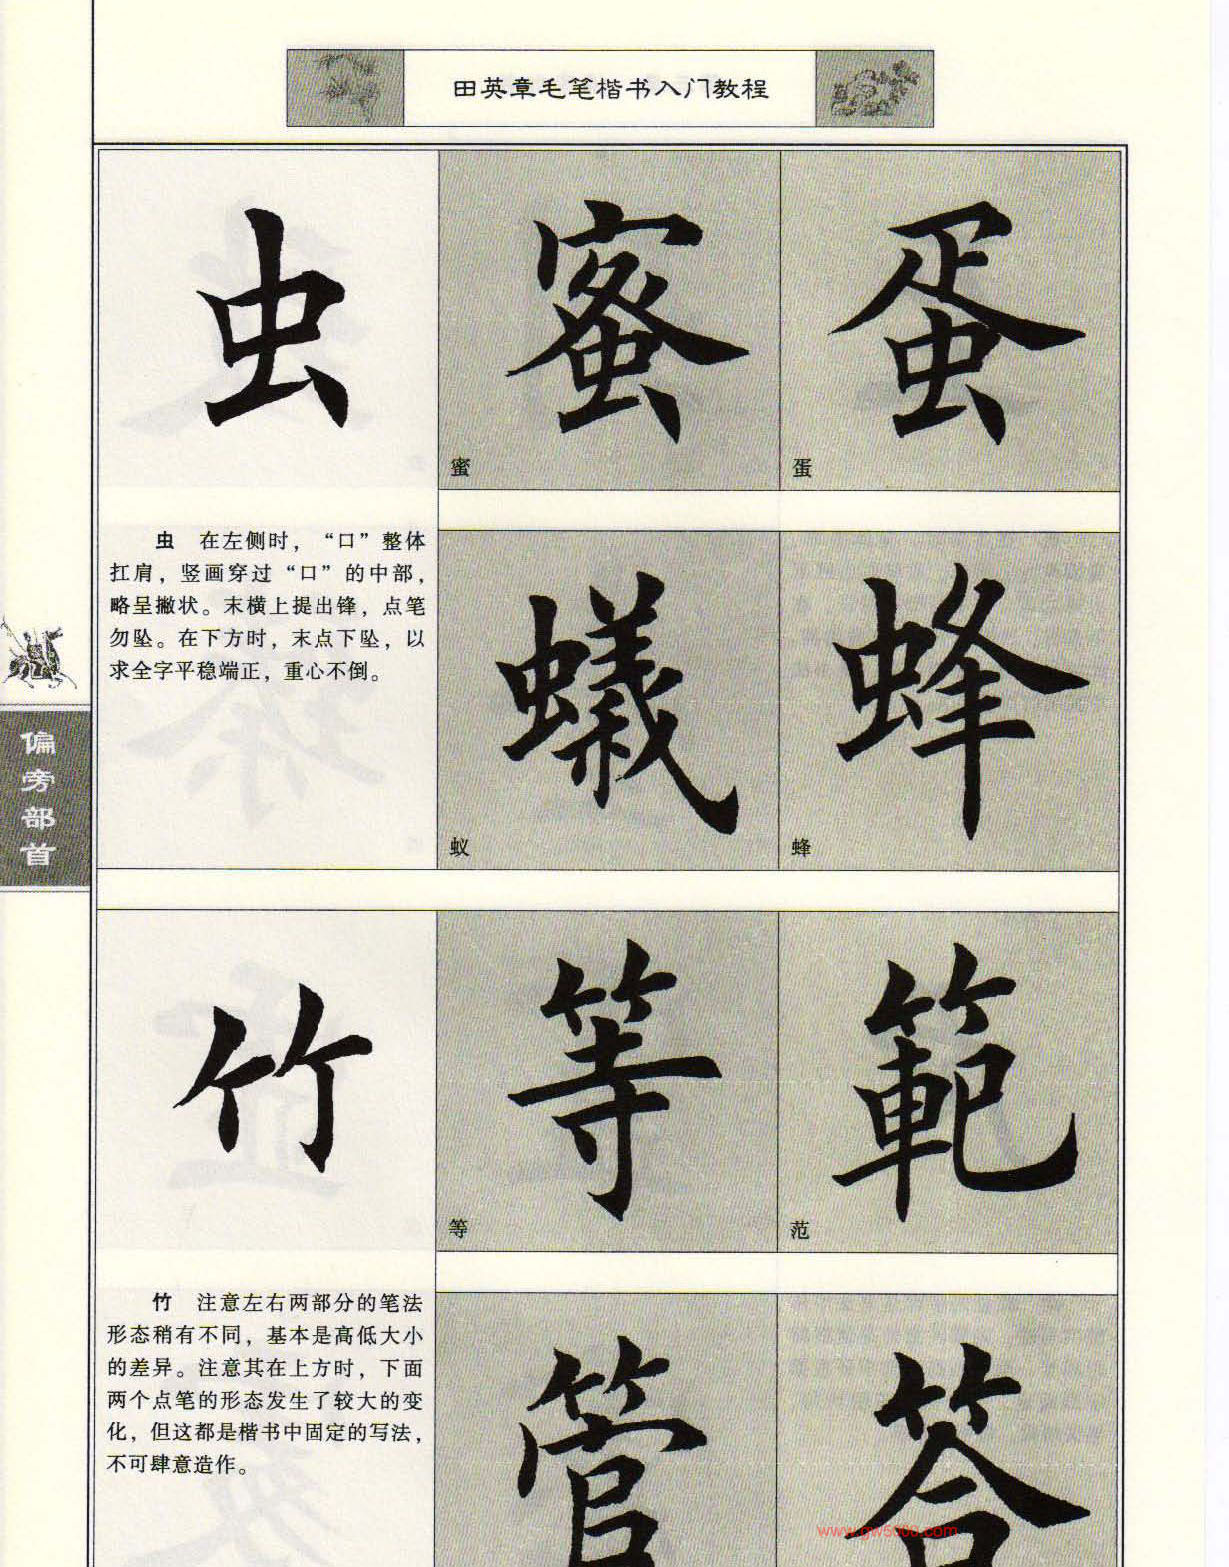 田英章毛笔楷书入门教程
虫
蜜
蛋
蜜
蛋
虫 在左侧时，“口”整体
扛肩，竖画穿过“口”的中部，
略呈撇状。末横上提出锋，点笔
勿坠。在下方时，末点下坠，以
求全字平稳端正，重心不倒。
蟻
蜂
蚁
蜂
偏旁部首
竹
等
範
等
范
竹 注意左右两部分的笔法
形态稍有不同，基本是高低大小
的差异。注意其在上方时，下面
两个点笔的形态发生了较大的变
化，但这都是楷书中固定的写法，
不可肆意造作。
管
答